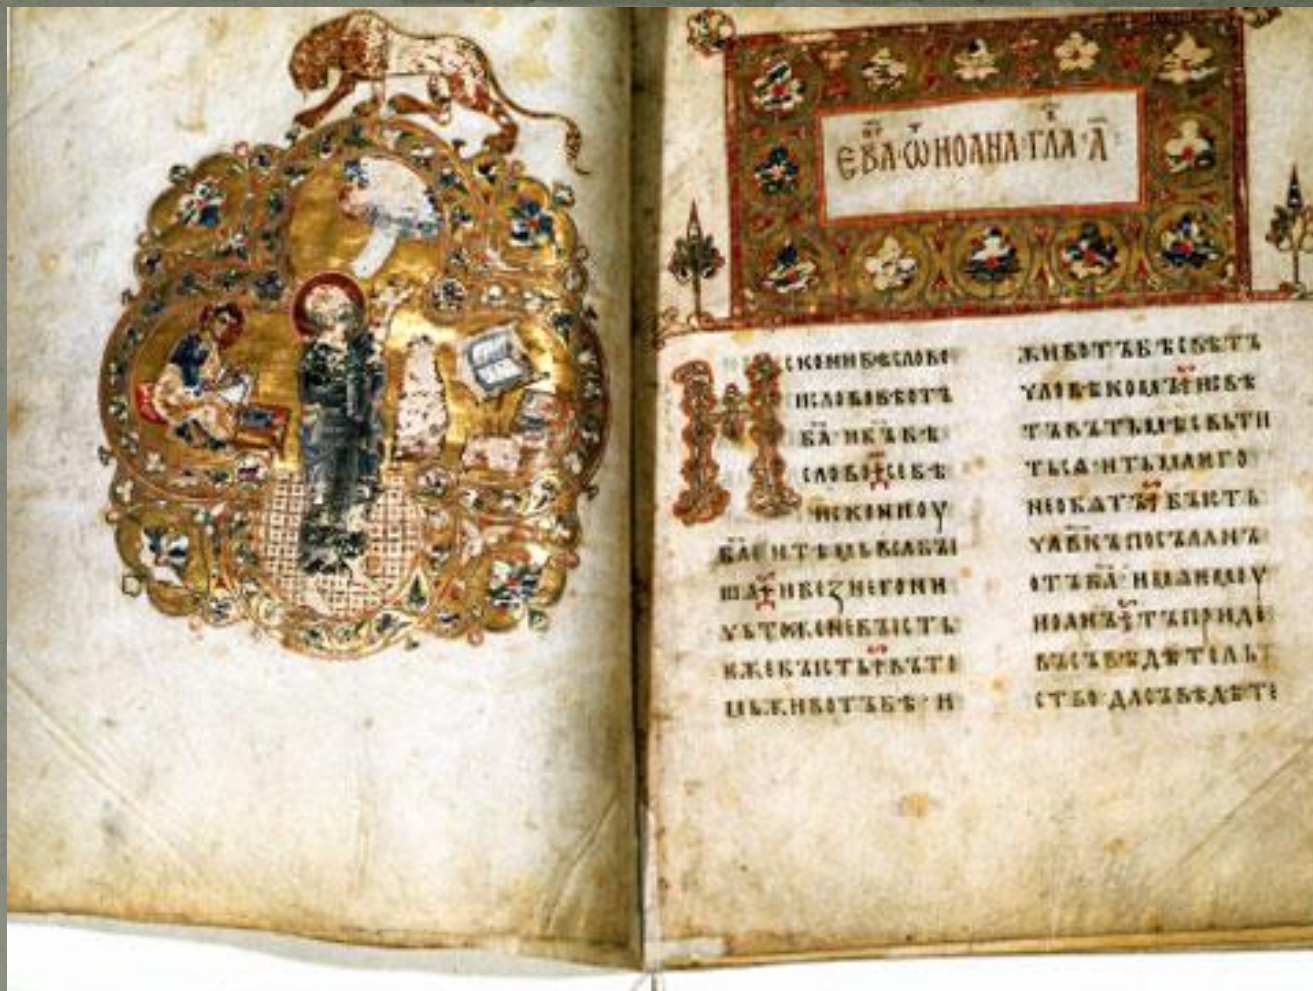 ЕВА·Ѿ ИОАНА·ГЛА·А҃
ИСКОНИ БѢ СЛОВО
И СЛОВО БѢ ОТЪ
Б҃А· И Б҃Ъ БѢ
СЛОВО ⁘ СЕ БѢ
ИСКОНИ ОУ
Б҃А· И ТѢМЬ ВЬСА БЫ
ША ⁘ И БЕЗ НЕГО НИ
ЧЬТОЖЕ НЕ БЫСТЬ
ЕЖЕ БЫСТЬ ⁘ ВЪ ТО
МЬ ЖИВОТЪ БѢ· И
ЖИВОТЪ БѢ СВѢТЪ
ЧЛОВѢКОМЪ ⁘ И СВѢ
ТЪ ВЪ ТЬМѢ СВЬТИ
ТЬСѦ· И ТЬМА ЕГО
НЕ ОБѦТЪ ⁘ БЫСТЬ
ЧЛ҃ВКЪ ПОСЪЛАНЪ
ОТЪ Б҃А· ИМѦ ЕМОУ
ИОАНЪ ⁘ ТЪ ПРИДЕ
ВЪ СЪВѢДѢТЕЛЬ
СТВО· ДА СЪВѢДѢТЕ